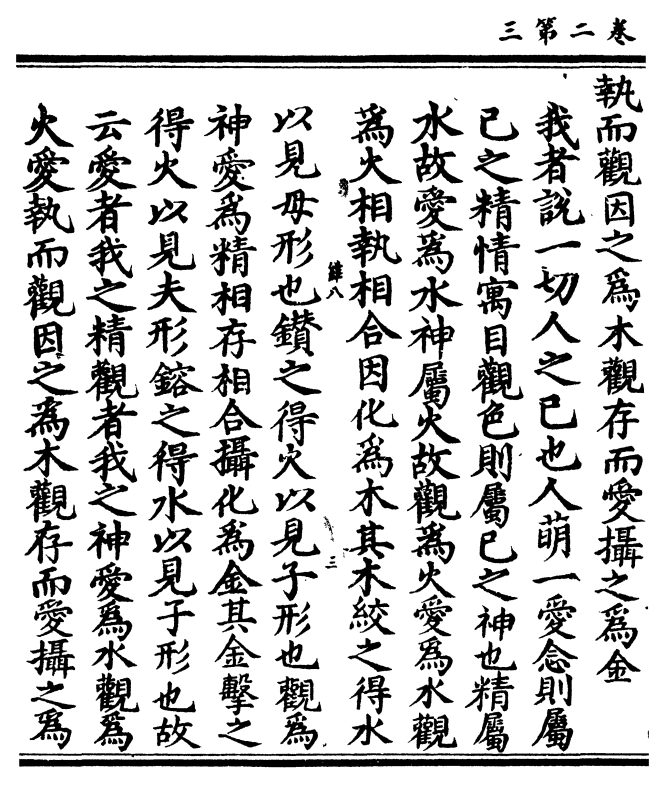 卷二第三
執而觀因之爲木觀存而愛攝之爲金
我者說一切人之已也人萌一愛念則屬
已之精情寓目觀色則屬已之神也精屬
水故愛爲水神屬火故觀爲火愛爲水觀
爲火相執相合因化爲木其木絞之得水
維八
三
以見母形也鑚之得火以見子形也觀爲
神愛爲精相存相合攝化爲金其金擊之
得火以見夫形鎔之得水以見子形也故
云愛者我之精觀者我之神愛爲水觀爲
火愛執而觀因之爲木觀存而愛攝之爲